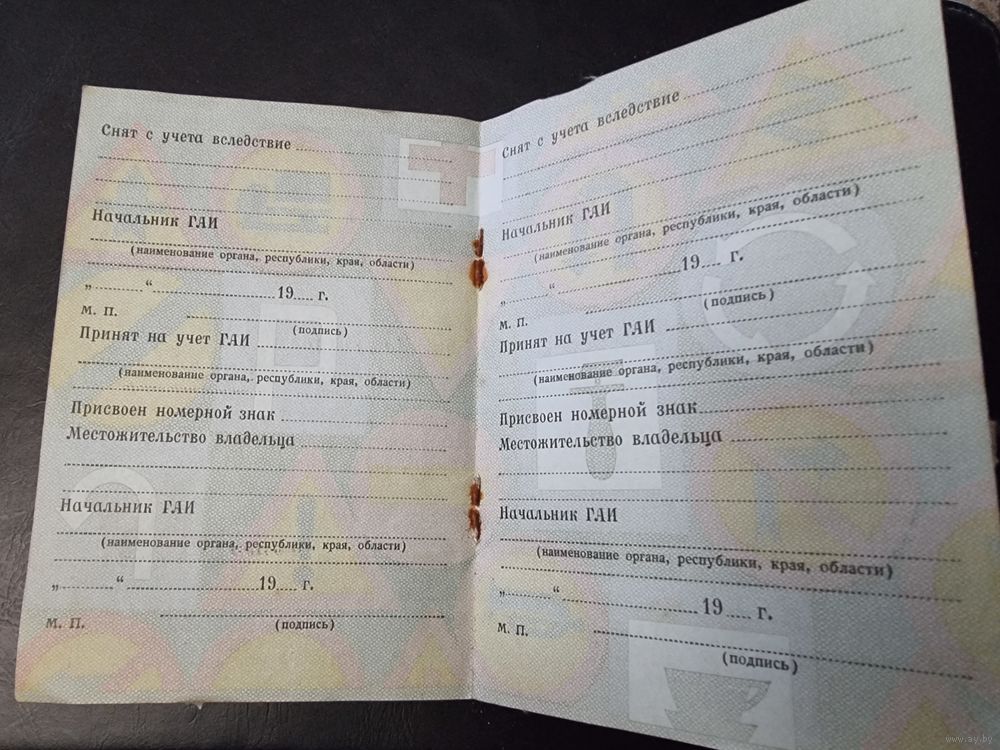 Снят с учета вследствие
Начальник ГАИ
(наименование органа, республики, края, области)
„ “ 19 г.
М. П.
(подпись)
Принят на учет ГАИ
(наименование органа, республики, края, области)
Присвоен номерной знак
Местожительство владельца
Начальник ГАИ
(наименование органа, республики, края, области)
„ “ 19 г.
М. П.
(подпись)
Снят с учета вследствие
Начальник ГАИ
(наименование органа, республики, края, области)
„ “ 19 г.
М. П.
(подпись)
Принят на учет ГАИ
(наименование органа, республики, края, области)
Присвоен номерной знак
Местожительство владельца
Начальник ГАИ
(наименование органа, республики, края, области)
„ “ 19 г.
М. П.
(подпись)
www.ay.by